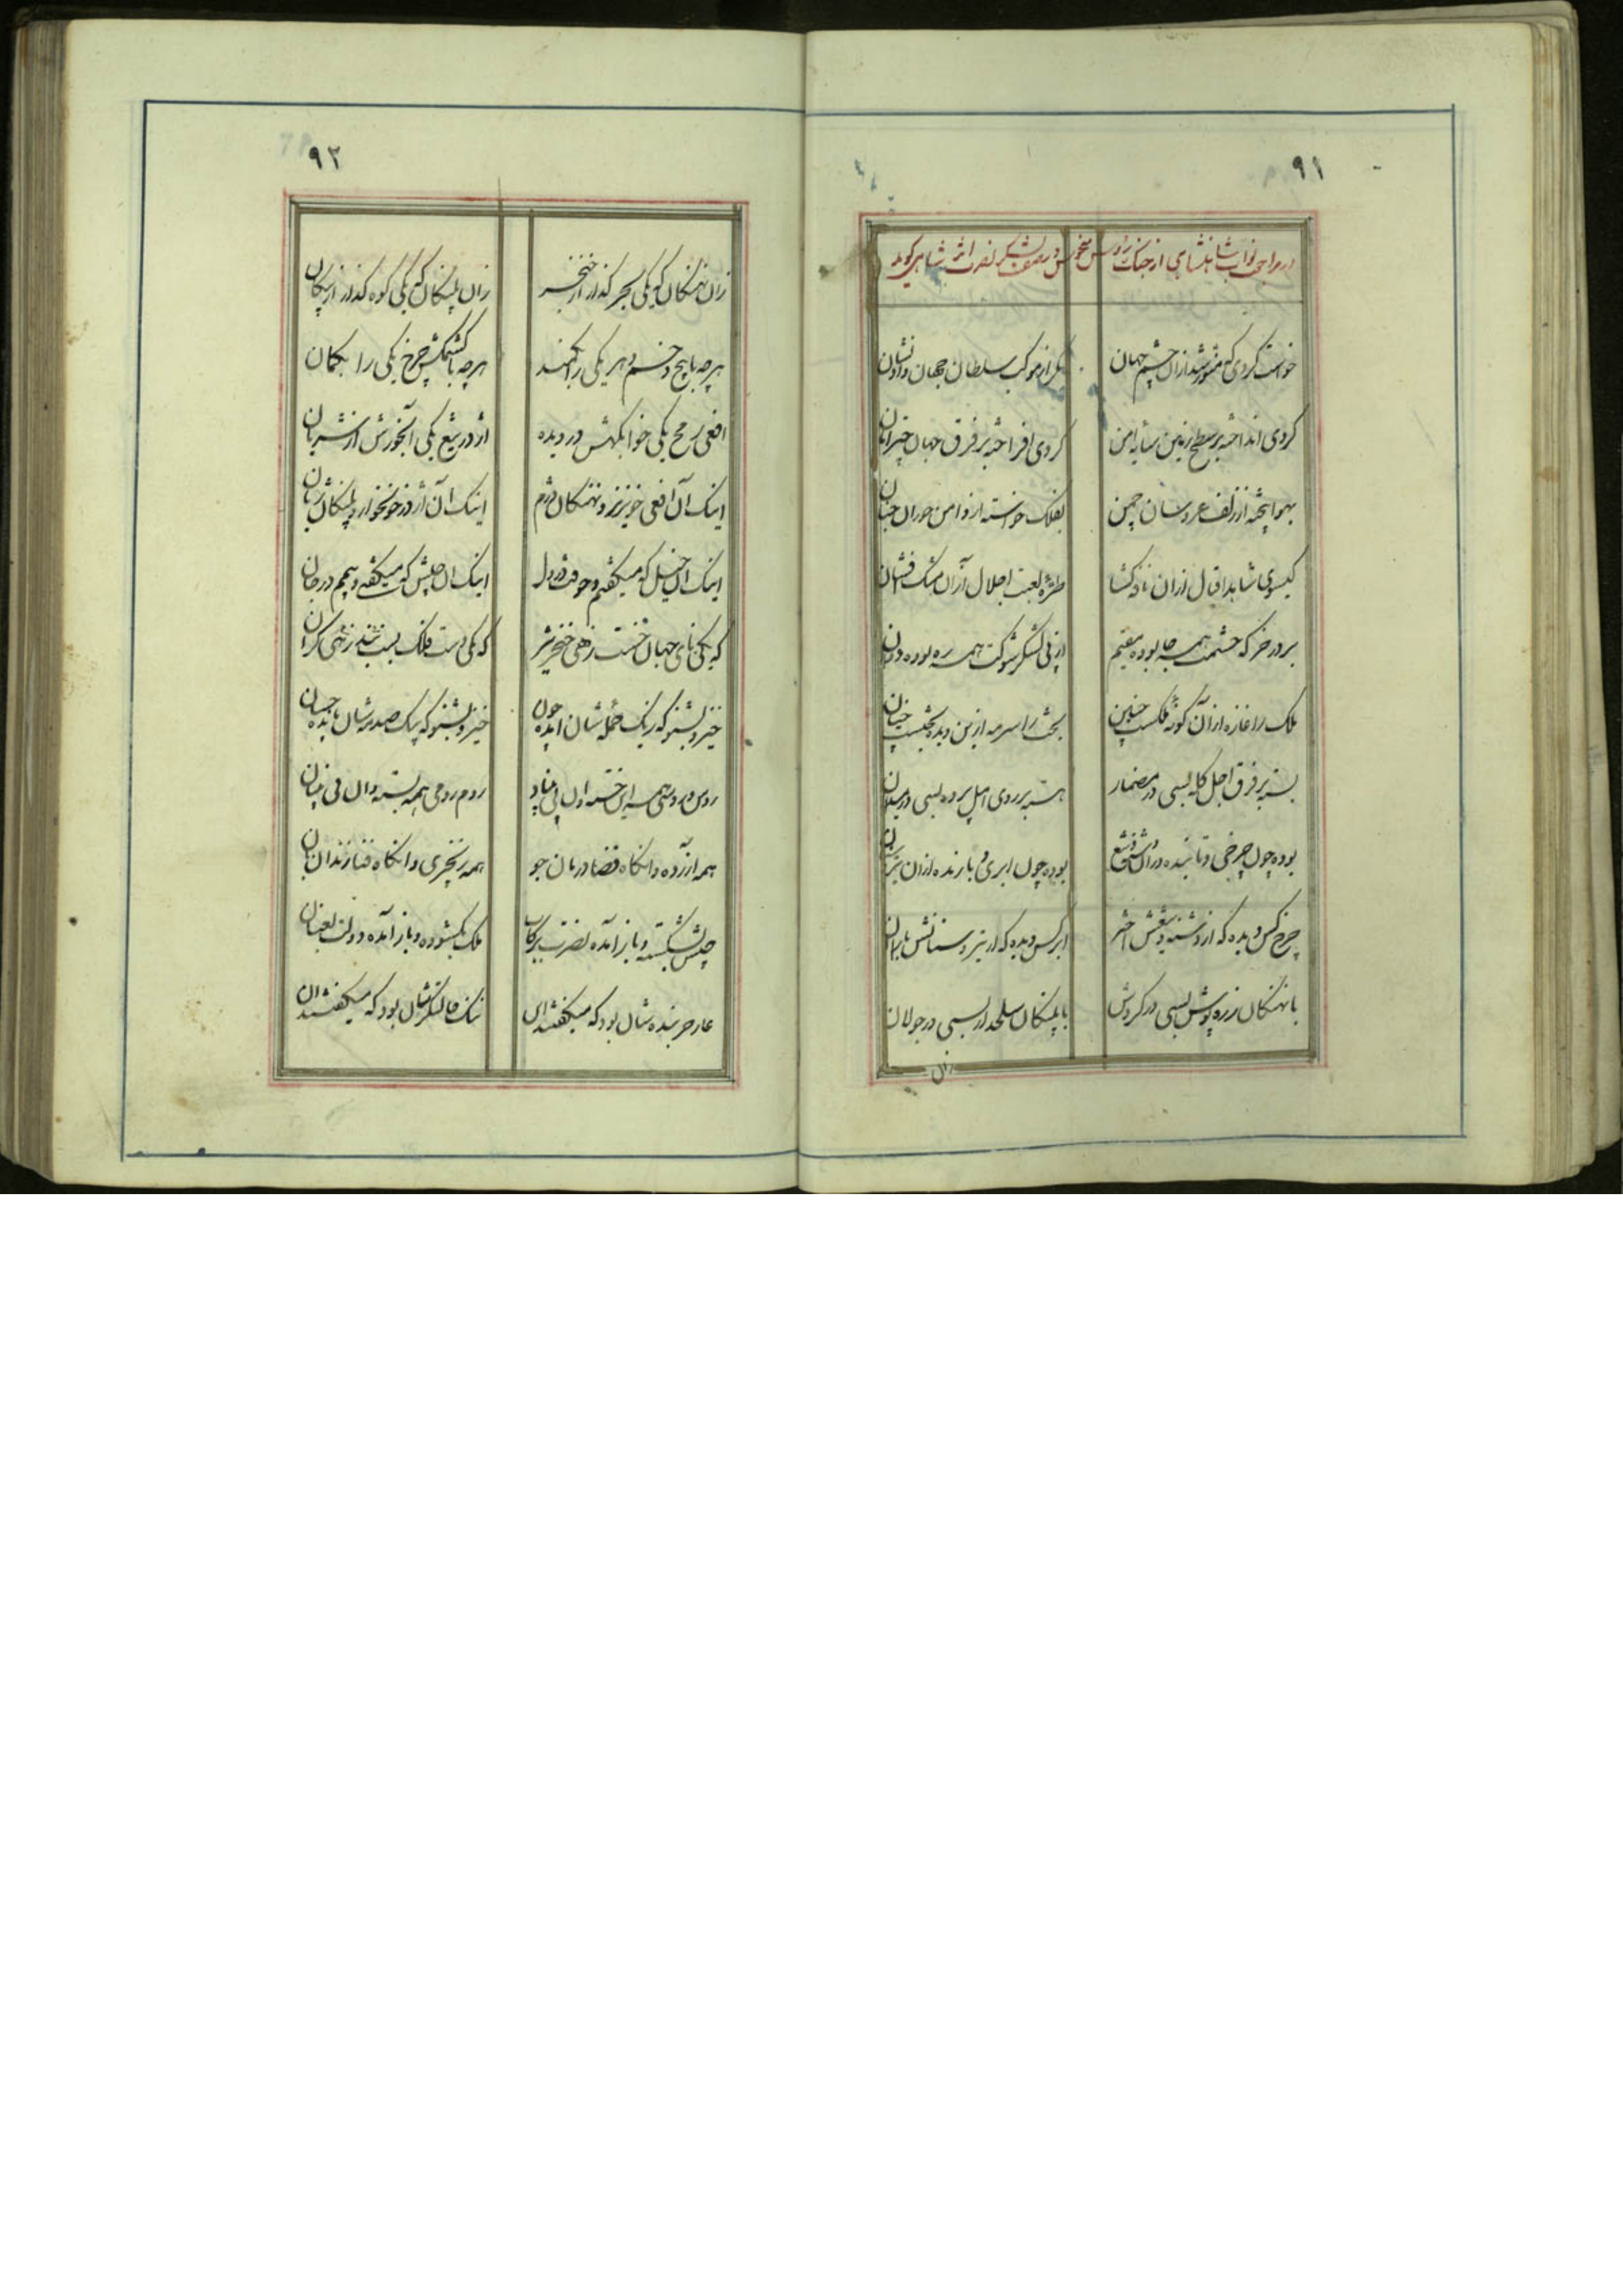 ۹۱
در مراجعت نواب شاهنشاهی از جنگ روس منحوس در صفت لشکر نصرت اثر شاهی گوید
خواست گردی که منور شد از آن چشم جهان
مگر از موکب سلطان جهان داد نشان
گردی انداخته بر سطح زمین سایه امن
گردی افراخته بر فرق جهان چتر امان
بهوا بیخته از زلف عروسان چمن
بفلک خواسته از دامن حوران جنان
گیسوی شاهد اقبال از آن نافه گشا
طره لعبت اجلال از آن مشک فشان
بر در خرگه حشمت همه جا بوده مقیم
از پی لشکر شوکت همه ره بوده دوان
ملک را غازه از آن گونه فکنست چنین
بخت را سرمه ازین دیده بخشست چنان
بسته بر فرق اجل کله بسی در مضمار
بسته بر روی امل پرده بسی در میدان
بوده چون چرخی و تابنده در آن دشنه و تیغ
بوده چون ابری و بارنده از آن تیر و سنان
چرخ کس دیده که از دشنه و تیغش اختر
ابر کس دیده که از تیر و سنانش باران
با نهنگان زره پوش بسی در گردش
با پلنگان سلحدار بسی در جولان
زان
۹۲
زان نهنگان که یکی بحر گذار از خنجر
زان پلنگان که یکی کوه گذار از پیکان
هر چه با پیچ و خم دهر یکی را بکمند
هر چه با کشمکش چرخ یکی را بکمان
افعی رمح یکی خوابگهش در دیده
اژدر تیغ یکی آبخورش از شریان
اینک آن افعی خونریز و نهنگان دژم
اینک آن اژدر خونخوار و پلنگان ژیان
اینک آن خیل که میگفتم و خوفت در دل
اینک آن جیش که میگفتم و بیمم در جان
که یکی نای جهان خست زهی خنجر تیز
که یکی دست فلک بست زهی گران
خیز و بشنو که ز یک حمله شان آمده چون
خیز و بشنو که ز یک صدمه شان مانده چسان
روس و روسی همه این خسته و آن بی بنیاد
روم و رومی همه بسته و آن بی بنیان
همه آزرده و آنگاه قضا درمان جو
همه زنجیری و آنگاه فنا زندان بان
جیش بشکسته و باز آمده نصرت برکاب
ملک بگشوده و باز آمده دولت بعنان
عار خربنده شان بود که میگفتند آن
ننگ فالنگرشان بود که میگفتند آن